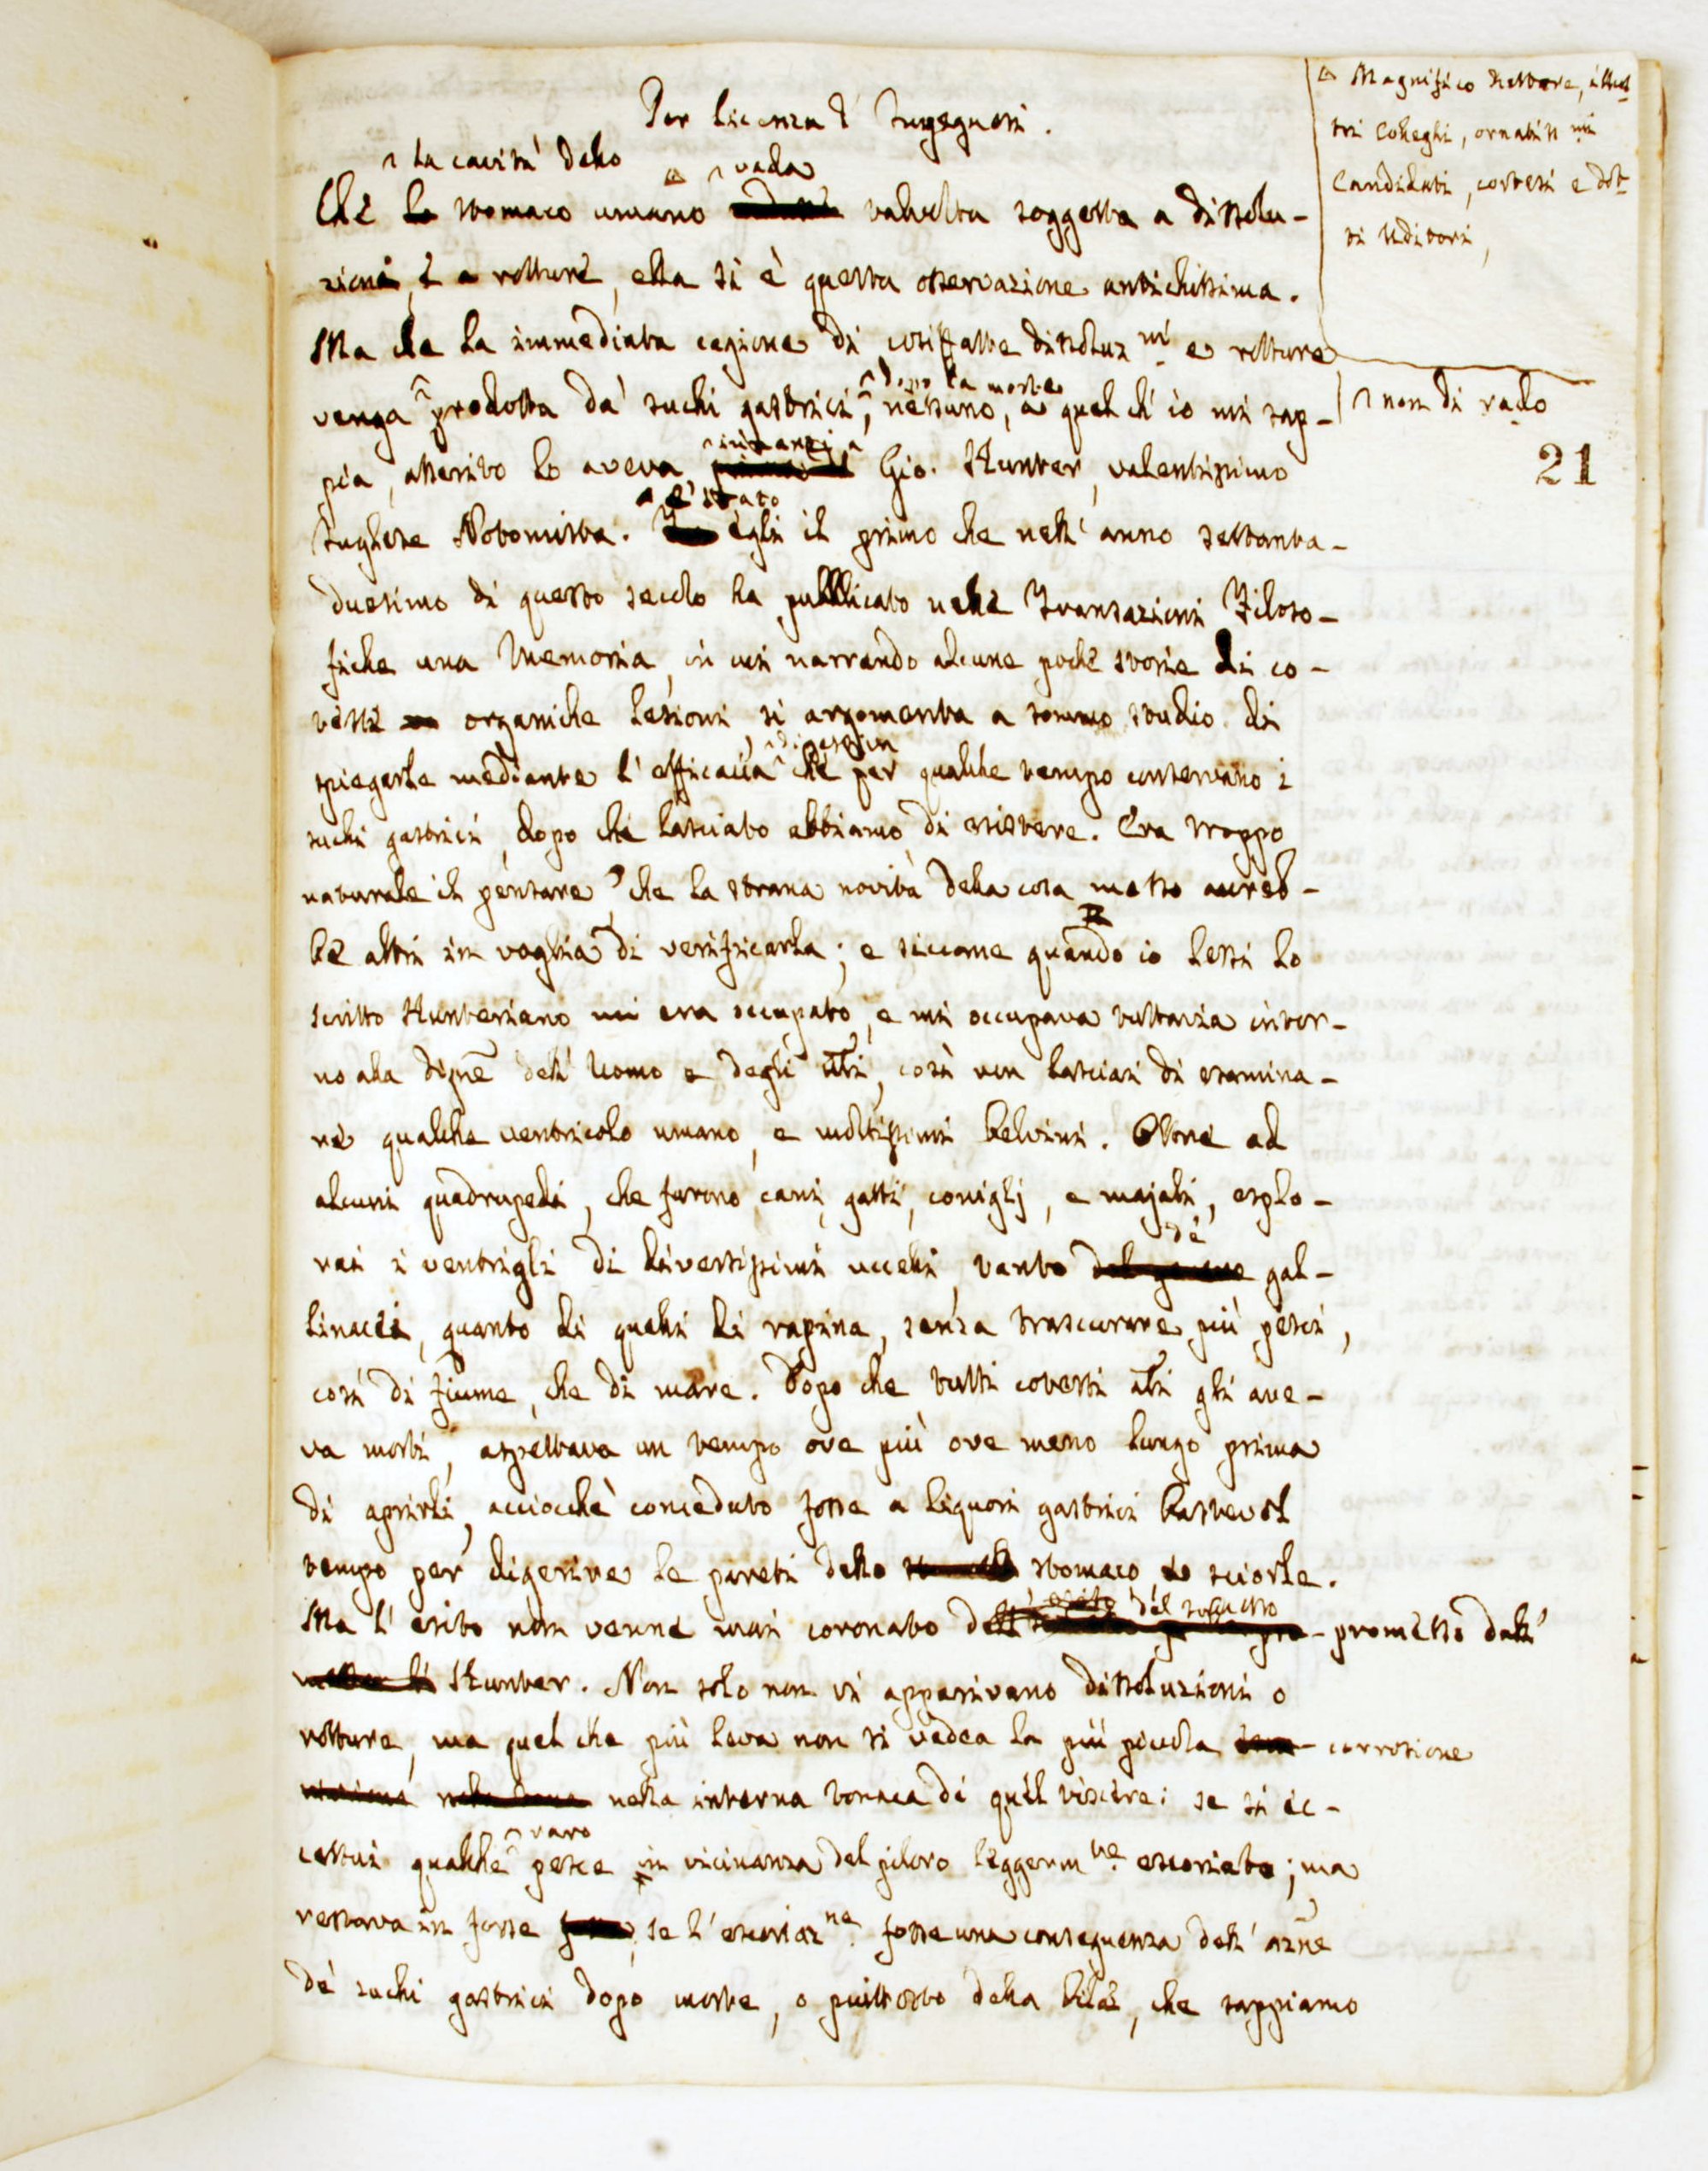 Per licenza d' Ingegneri.
la cavità dello
vada
Che lo stomaco umano talvolta soggetta a dissolu-
zioni, e a rotture, ella si è questa osservazione antichissima.
Ma che la immediata cagione di cosiffatte dissoluz.ni e rotture
dopo la morte
venga prodotta da' suchi gastrici, nessuno, a quel ch' io mi sap-
innanzi a
pia, asserito lo aveva, Gio. Hunter, valentissimo
è stato
Inglese Notomista. egli il primo che nell' anno settanta-
duesimo di questo secolo ha pubblicato nelle Transazioni Filoso-
fiche una Memoria, in cui narrando alcune poche storie di co-
teste organiche lesioni si argomenta a sommo studio di
digestiva
spiegarle mediante l' efficacia che per qualche tempo conservano i
suchi gastrici, dopo che lasciato abbiamo di esistere. Era troppo
naturale il pensare che la strana novità della cosa messo avreb-
be altri in voglia di verificarla; e siccome quando io lessi lo
scritto Hunteriano mi era occupato, e mi occupava tuttavia intor-
no alla dig.ne dell' Uomo e degli a̅l̅i̅, così non lasciai di esamina-
re qualche ventricolo umano, e moltissimi belvini. Oltre ad
alcuni quadrupedi, che furono cani, gatti, coniglj, e majali, esplo-
de'
rai i ventrigli di diversissimi uccelli, tanto gal-
linacei, quanto di quelli di rapina, senza trascurare più pesci,
così di fiume, che di mare. Dopo che tutti cotesti a̅l̅i̅ gli ave-
va morti, aspettava un tempo ove più ove meno lungo prima
di aprirli, acciocchè conceduto fosse a liquori gastrici bastevol
tempo per digerire le pareti dello stomaco o sciorle.
del successo
Ma l' esito non venne mai coronato promesso dall'
Hunter. Non solo non vi apparivano dissoluzioni o
rotture, ma quel che più leva non si vedea la più piccola corrosione
nella interna tonaca di quel viscere: se si ec-
raro
cettui qualche pesce in vicinanza del piloro leggerm.te escoriato; ma
restava in forse se l' escoriaz.ne fosse una conseguenza dell' az.ne
de' suchi gastrici dopo morte, o piuttosto della bile, che sappiamo
Magnifico Rettore, illus-
tri Colleghi, ornatiss.mi
Candidati, cortesi e dot-
ti Uditori,
non di rado
21